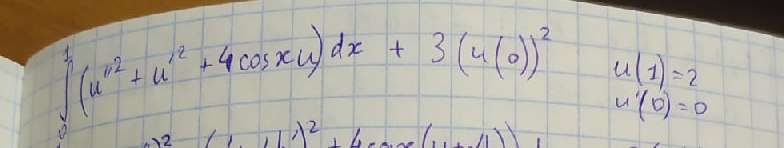 ∫₀¹ (u''² + u'² + 4cosx u) dx + 3(u(0))² u(1)=2
u'(0)=0